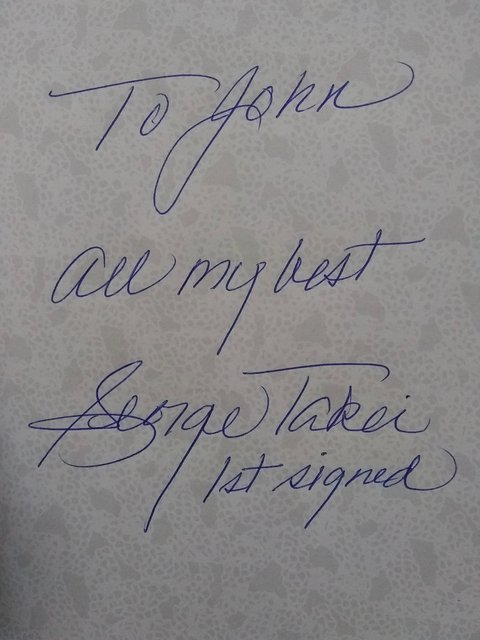 To John
All my best
George Takei
1st signed